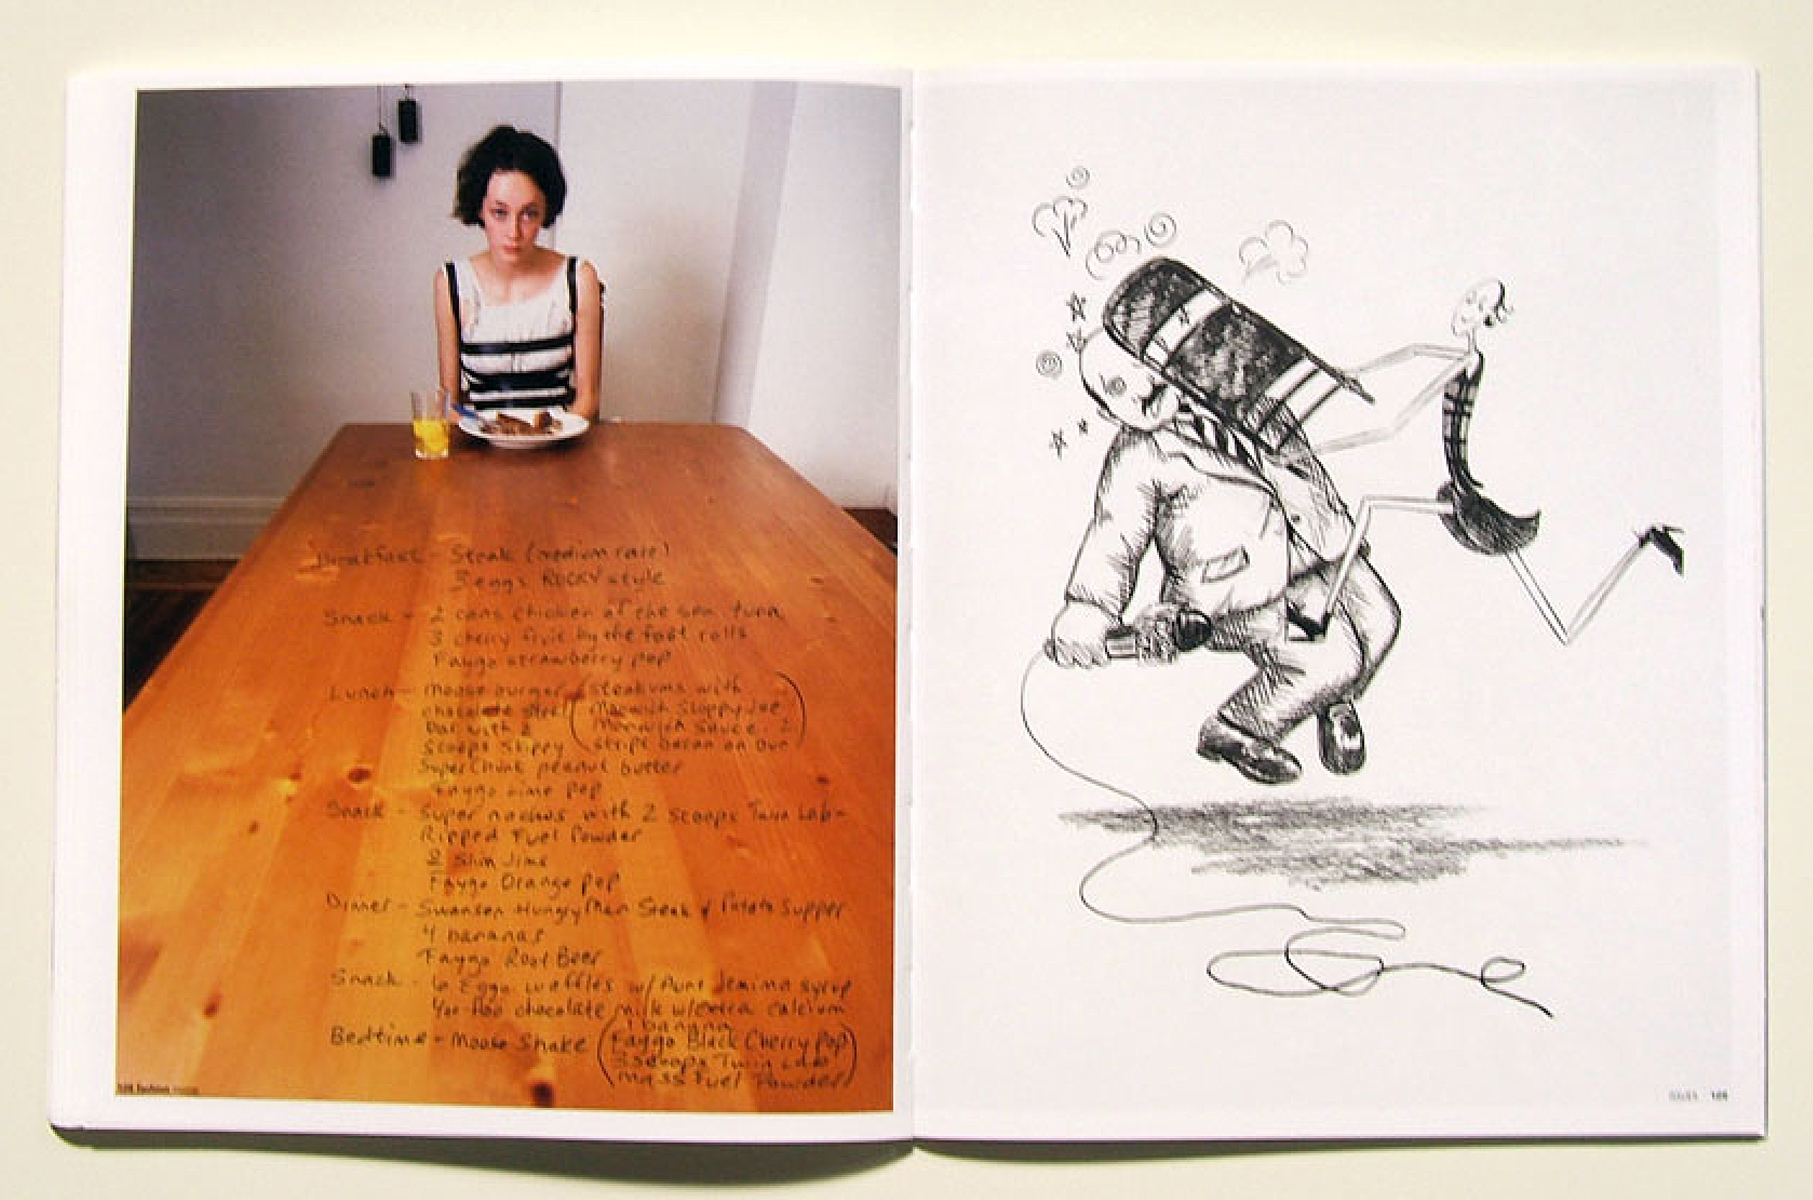 Breakfast - Steak (medium rare)
3 eggs ROCKY style
Snack - 2 cans chicken of the sea tuna
3 cherry fruit by the foot rolls
Faygo strawberry pop
Lunch - Moose burger (steakums with
chocolate Manwich Sloppy Joe
Bar with 2 Manwich Sauce. 2
Scoops Skippy strips bacon on bun)
SuperChunk peanut butter
Faygo Lime pop
Snack - Super nachos with 2 scoops Twin Lab-
Ripped Fuel Powder
2 Slim Jims
Faygo Orange pop
Dinner - Swanson Hungry Man Steak & Potato Supper
4 bananas
Faygo Root Beer
Snack - 6 Eggo waffles w/ Aunt Jemima syrup
Yoo-hoo chocolate milk w/extra calcium
Bedtime - Moose Shake (1 banana
Faygo Black Cherry Pop
3 scoops Twin Lab
Mass Fuel Powder)
fashion